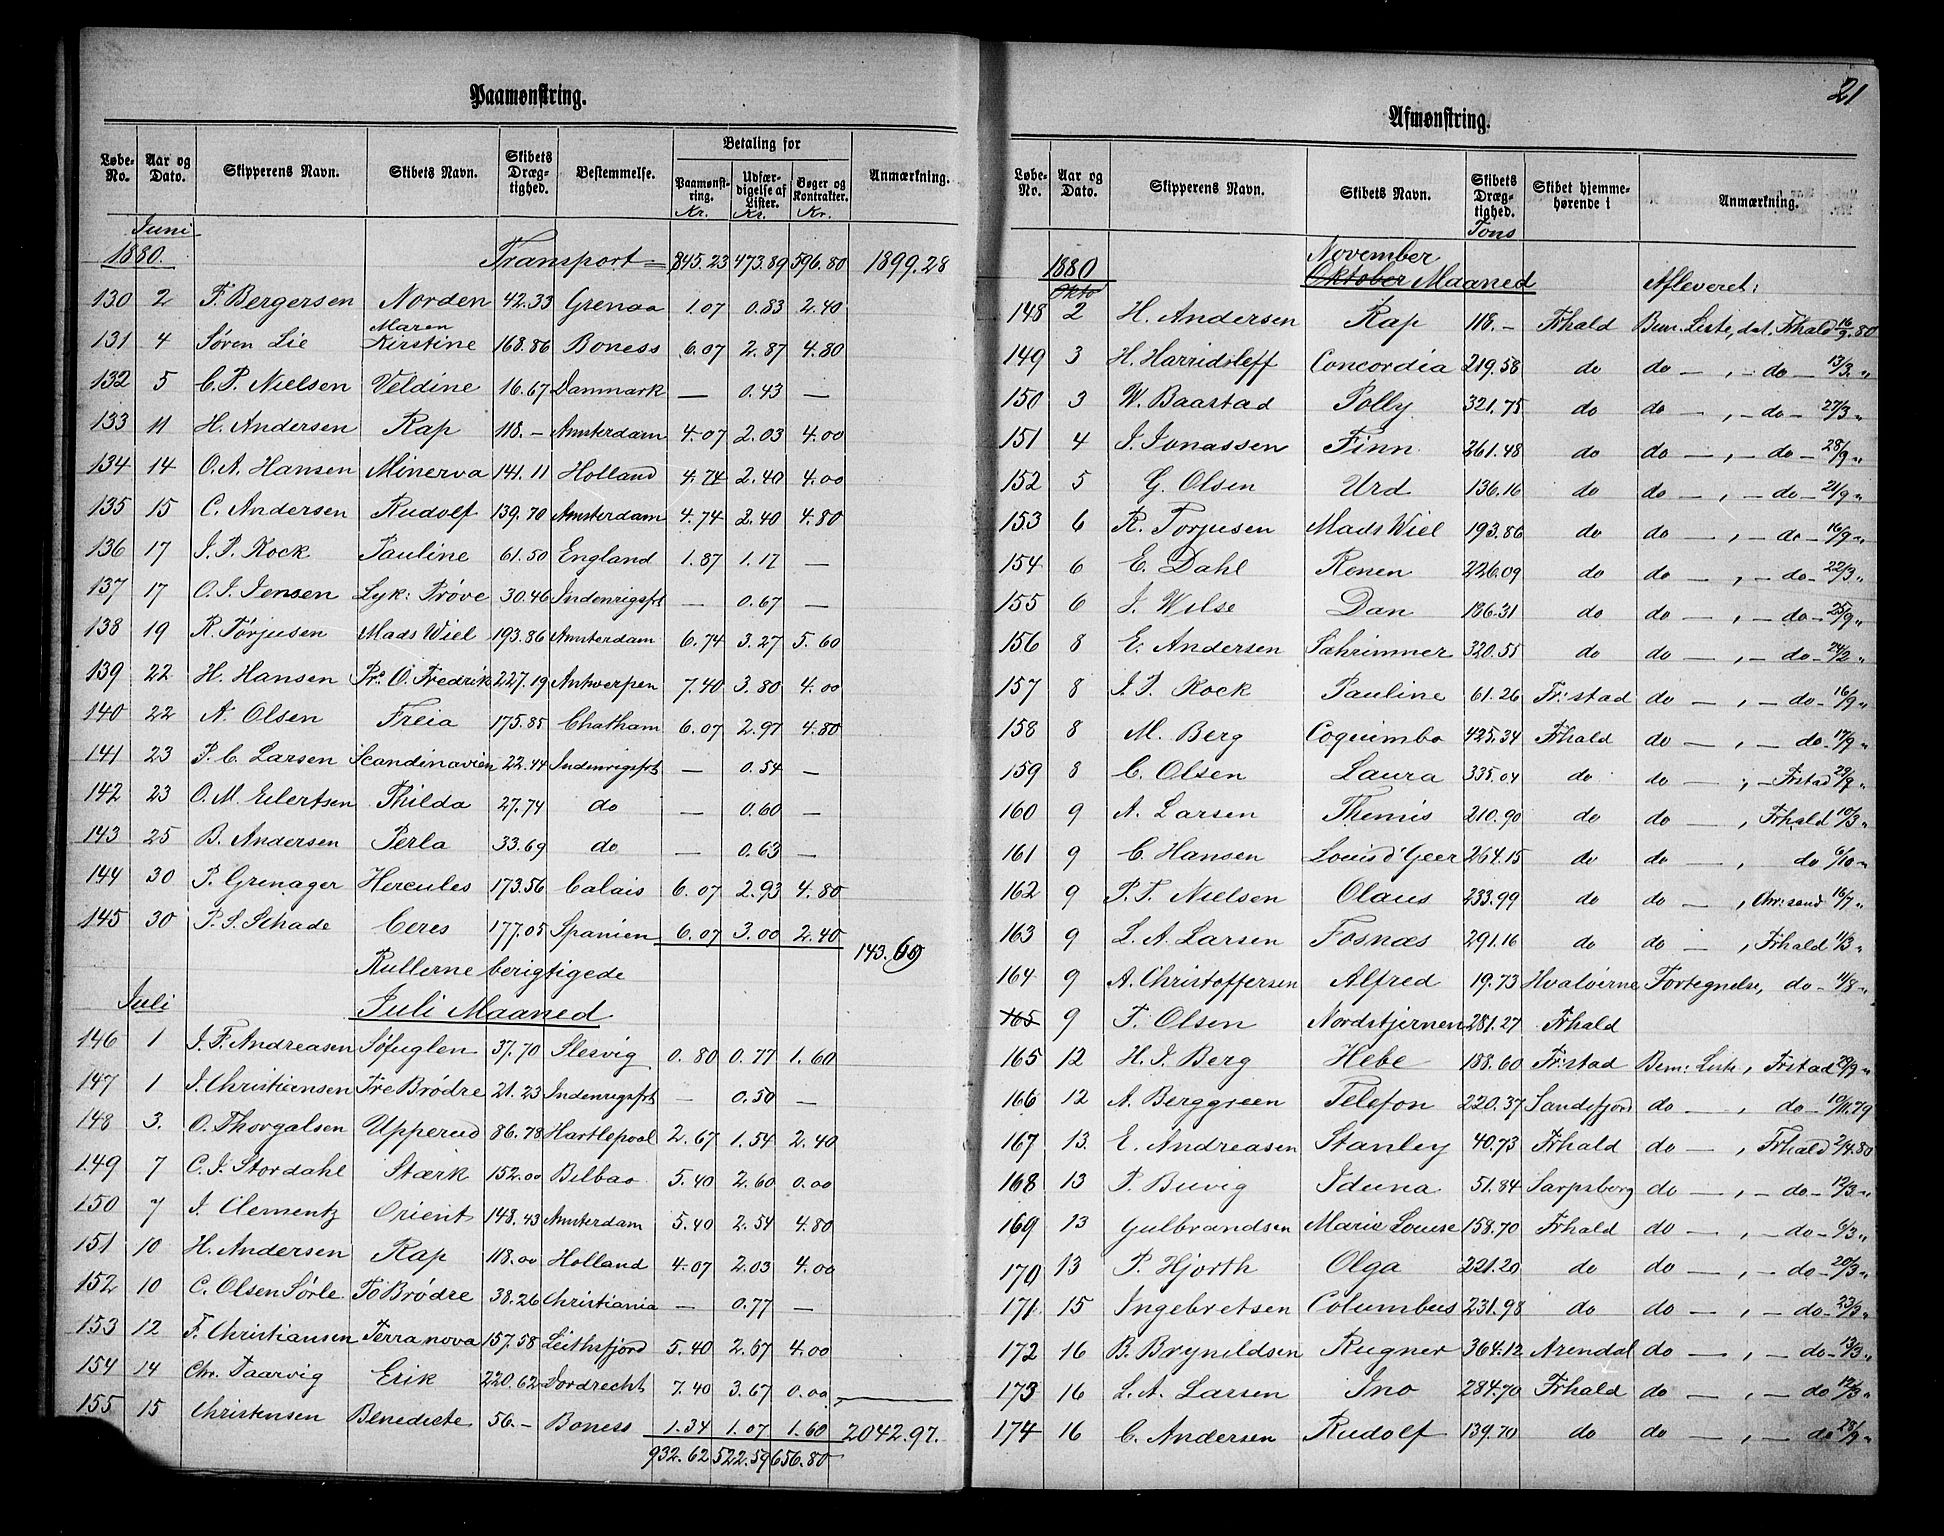 Paamønstring.
Løbe-No. Aar og Dato. Skipperens Navn. Skibets Navn. Skibets Dræg-tighed. Bestemmelse. Betaling for Paamønst-ring. Udfær-digelse af Lister. Bøger og Kontrakter. Anmærkning.
Kr. Kr. Kr.
Juni
1880. Transport = 845.23 473.89 596.80 1899.28
130 2 F. Bergersen Norden 42.33 Grenaa 1.07 0.83 2.40
131 4 Søren Lie Maren Kirstine 168.86 Boness 6.07 2.87 4.80
132 5 C. P. Nielsen Veldine 16.67 Danmark — 0.43 —
133 11 H. Andersen Rap 118.- Amsterdam 4.07 2.03 4.00
134 14 O. A. Hansen Minerva 141.11 Holland 4.74 2.40 4.00
135 15 C. Andersen Rudolf 139.70 Amsterdam 4.74 2.40 4.80
136 17 J. P. Kock Pauline 61.50 England 1.87 1.17 —
137 17 O. J. Jensen Lyk: Prøve 30.46 Indenrigsfrt — 0.67 —
138 19 R. Torjusen Mads Wiel 193.86 Amsterdam 6.74 3.27 5.60
139 22 H. Hansen Pr. O. Fredrik 227.19 Antwerpen 7.40 3.80 4.00
140 22 A. Olsen Freia 175.85 Chatham 6.07 2.97 4.80
141 23 P. C. Larsen Scandinavien 22.44 Indenrigsfrt — 0.54 —
142 23 O. M. Eilertsen Thilda 27.74 do — 0.60 —
143 25 B. Andersen Perla 33.69 do — 0.63 —
144 30 P. Grenager Hercules 173.56 Calais 6.07 2.93 4.80
145 30 P. S. Schade Ceres 177.05 Spanien 6.07 3.00 2.40
143.69
Rullerne berigtigede
Juli Juli Maaned
146 1 J. F. Andreasen Søfuglen 37.70 Slesvig 0.80 0.77 1.60
147 1 J. Christiansen Tre Brødre 21.23 Indenrigsfrt — 0.50 —
148 3. O. Thorgalsen Upperud 86.78 Hartlepool 2.67 1.54 2.40
149 7 C. J. Stordahl Stærk 152.00 Bilbao 5.40 2.60 0.00
150 7 J. Clementz Orient 148.43 Amsterdam 5.40 2.54 4.80
151 10 H. Andersen Rap 118.00 Holland 4.07 2.03 4.00
152 10 C. Olsen Sørle To Brødre 38.26 Christiania — 0.77 —
153 12 F. Christiansen Terranova 157.58 Leithsfjord 5.40 2.67 4.00
154 14 Chr. Taarvig Erik 220.62 Dordrecht 7.40 3.67 0.00
155 15 Christensen Benedicte 56.- Boness 1.34 1.07 1.60 2042.97.
932.62 522.59 656.80
21
Afmønstring.
Løbe-No. Aar og Dato. Skipperens Navn. Skibets Navn. Skibets Dræg-tighed. Skibet hjemme-hørende i Anmærkning.
Tons
1880 November
Okto Oktober Maaned Afleveret:
148 2 H. Andersen Rap 118.- Frhald Bem. Liste, dat. Frhald 16/9.80
149 3 H. Harridsleff Concordia 219.58 do do — , — do — 13/3 "
150 3 W. Baastad Polly 321.75 do do — , — do — 27/3 "
151 4 J. Jonassen Finn 261.48 do do — , — do — 28/9 "
152 5 G. Olsen Urd 136.16 do do — , — do — 21/9 "
153 6 R. Torjusen Mads Wiel 193.86 do do — , — do — 16/9 "
154 6 E. Dahl Renen 226.09 do do — , — do — 22/3 "
155 6 J. Wilse Dan 186.31 do do — , — do — 25/9 "
156 8 E. Andersen Sæhrimner 320.55 do do — , — do — 24/2 "
157 8 J. P. Kock Pauline 61.26 Fr:stad do — , — do — 16/9 "
158 8 M. Berg Coquimbo 425.34 Frhald do — , — do — 17/9 "
159 8 C. Olsen Laura 335.04 do do — , — Frstad 29/9 "
160 9 A. Larsen Themis 210.90 do do — , Frhald 10/3 "
161 9 C. Hansen Louis d'Geer 264.15 do do — , do 6/10 "
162 9 P. T. Nielsen Olaus 233.99 do do — , Chr:sand 16/7 "
163 9 L. A. Larsen Fosnæs 291.16 do do — , Frhald 11/3 "
164 9 A. Christoffersen Alfred 19.73 Hvaløerne Fortegnelse, do — 11/8 "
165 9 T. Olsen Nordstjernen 281.27 Frhald
165 12 H. J. Berg Hebe 188.60 Fr:stad Bem: Liste, Frstad 28/9 "
166 12 A. Berggreen Telefon 220.37 Sandefjord do — , do — 10/11.79
167 13. E. Andreasen Stanley 40.73 Frhald do — , Frhald 2/4.80
168 13 P. Buvig Iduna 51.84 Sarpsborg do — , — do — 12/3 "
169 13 Gulbrandsen Marie Louise 158.70 Frhald do — , — do — 6/3 "
170 13 P. Hjorth Olga 221.20 do do — , — do — 20/3 "
171. 15 Ingebretsen Columbus 231.98 do do — , — do — 23/3 "
172 16 B. Brynildsen Rugner 364.12 Arendal do — , — do — 13/3 "
173 16 L. A. Larsen Ino 284.70 Frhald do — , — do 12/3 "
174 16 C. Andersen Rudolf 139.70 do do — , — do 28/9 "